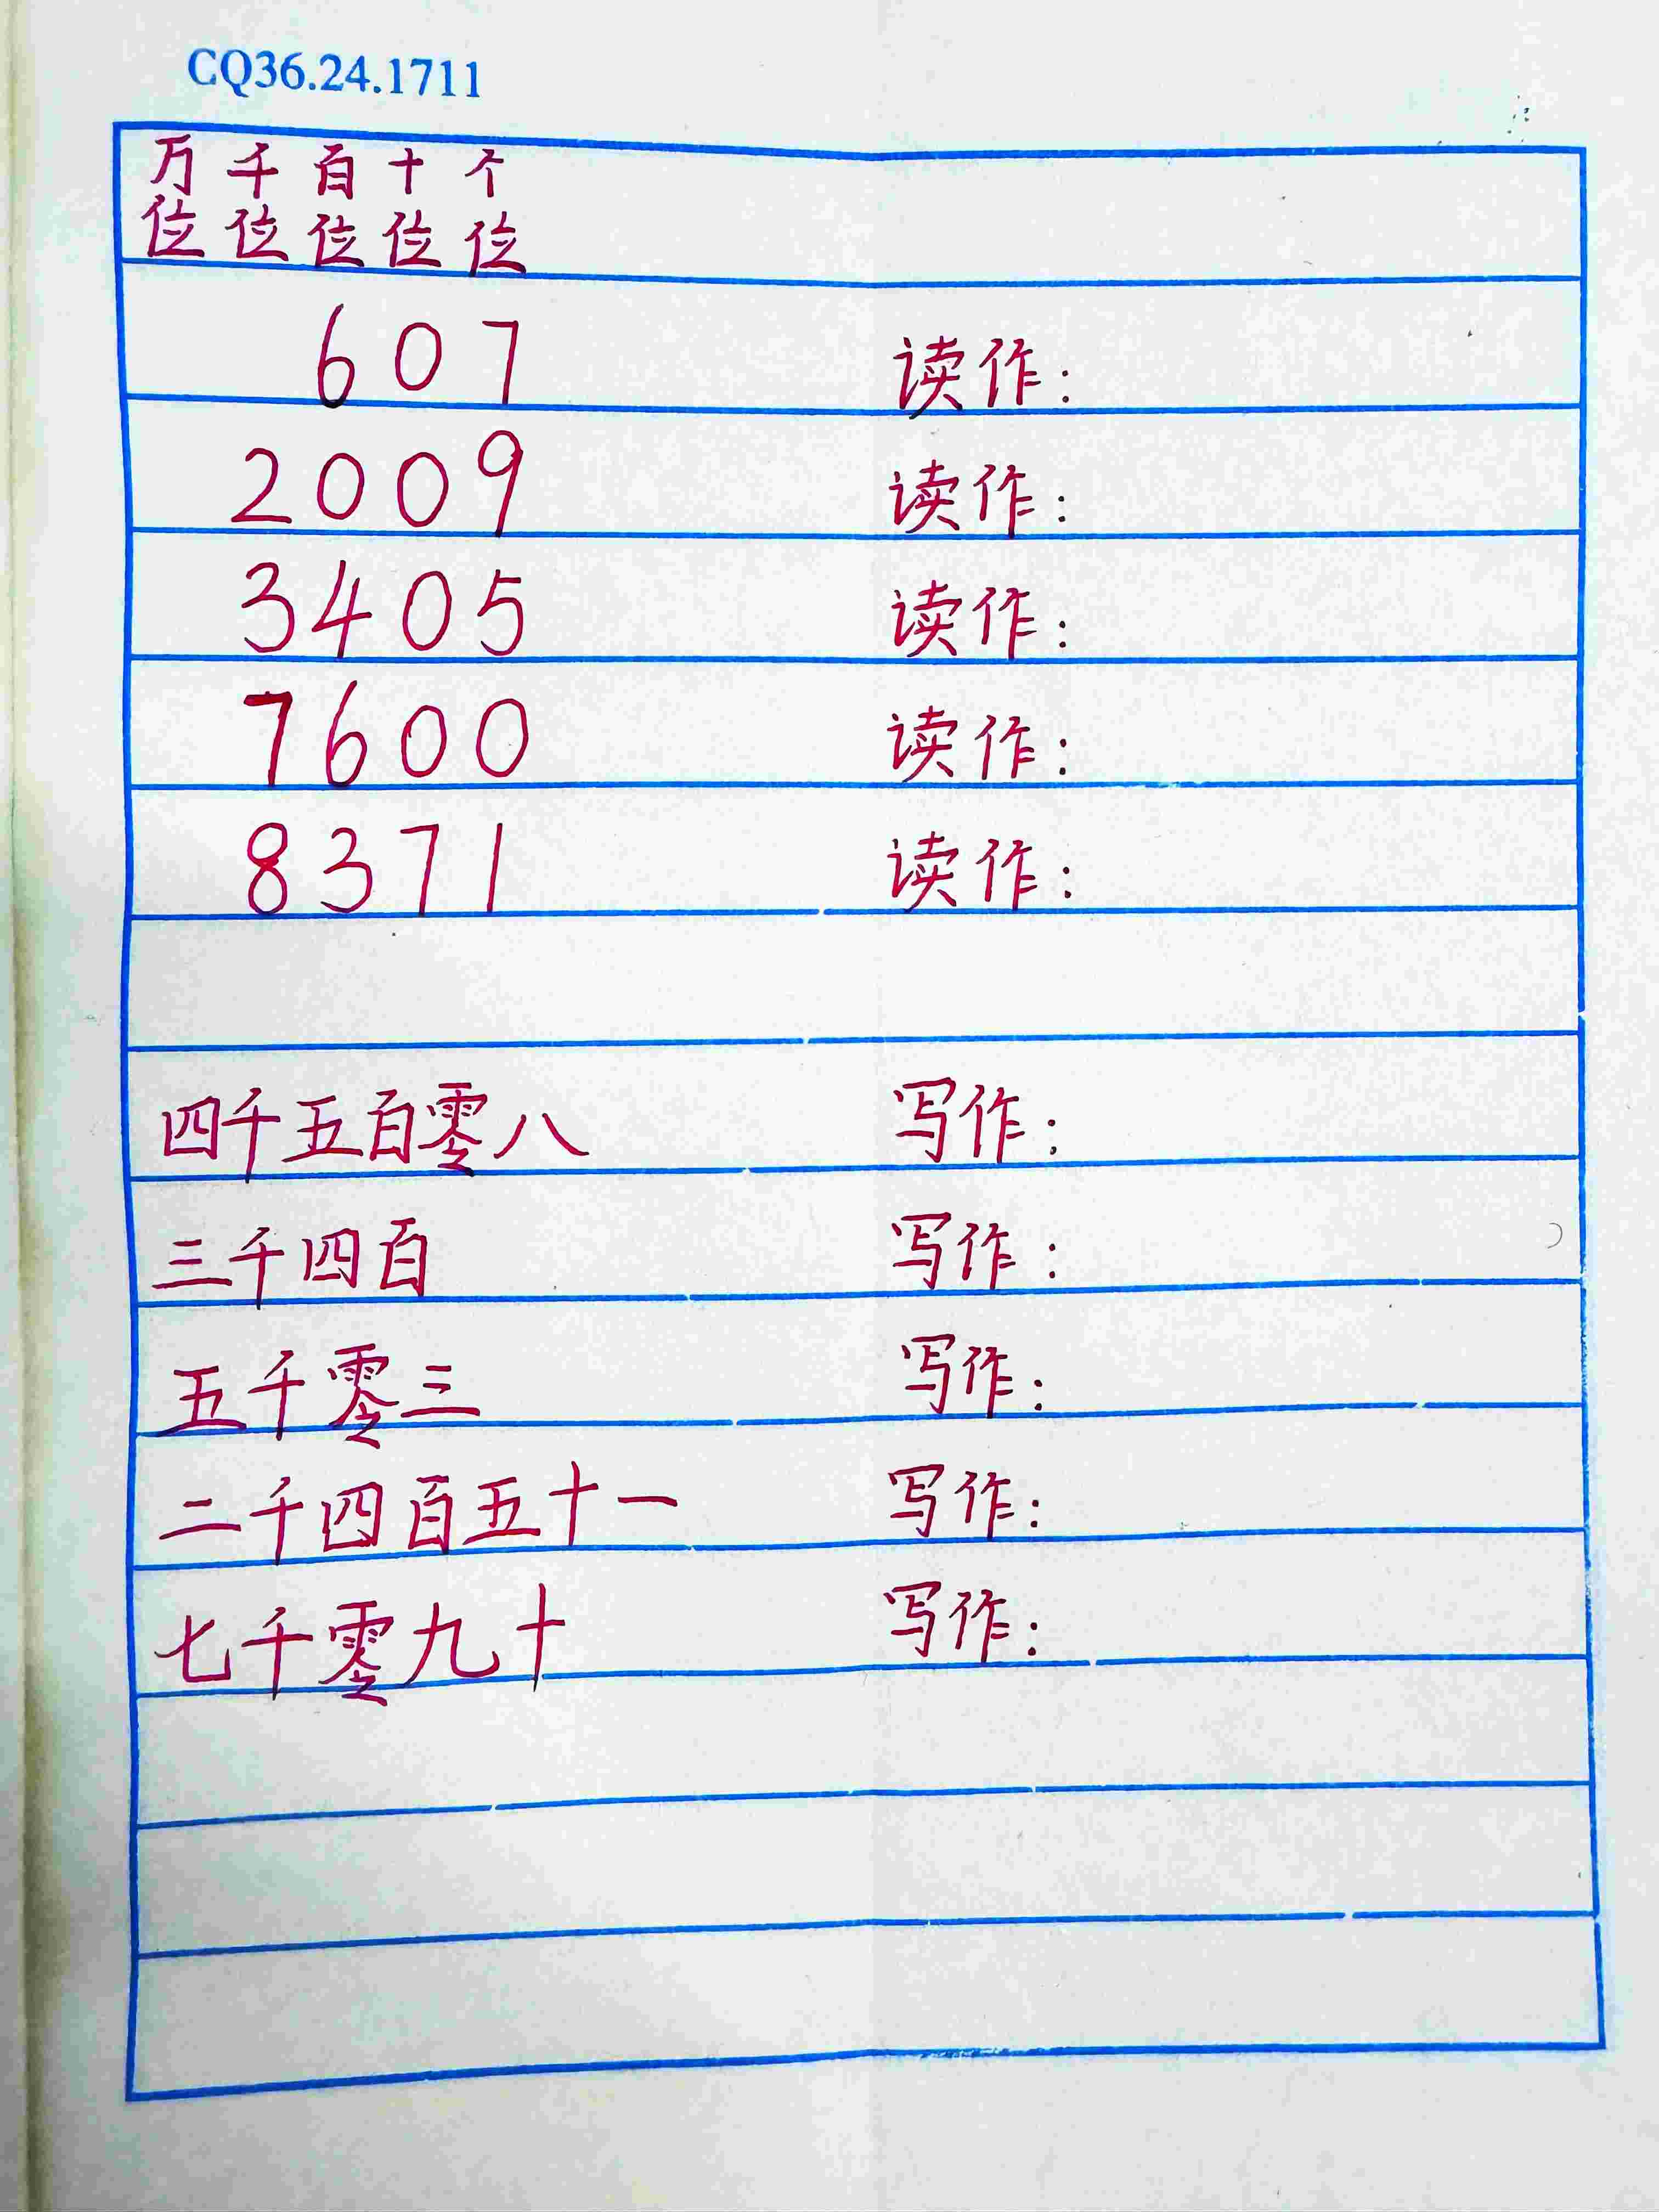 CQ36.24.1711
万 千 百 十 个
位 位 位 位 位
607 读作：
2009 读作：
3405 读作：
7600 读作：
8371 读作：
四千五百零八 写作：
三千四百 写作：
五千零三 写作：
二千四百五十一 写作：
七千零九十 写作：